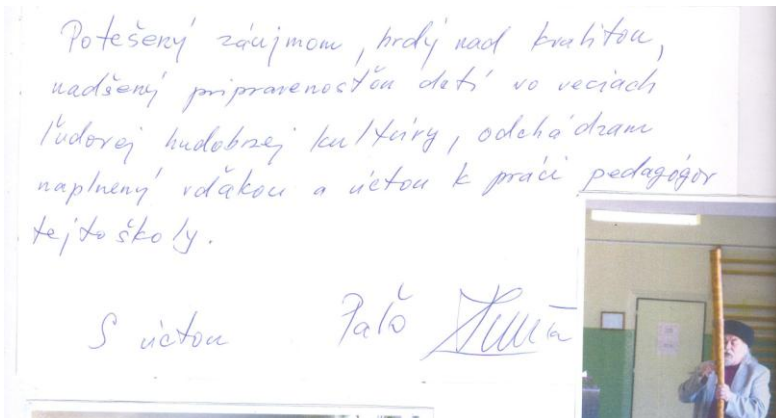 Potešený záujmom, hrdý nad kvalitou,
nadšený pripravenosťou detí vo veciach
ľudovej hudobnej kultúry, odchádzam
naplnený vďakou a úctou k práci pedagógov
tejto školy.
S úctou Paľo